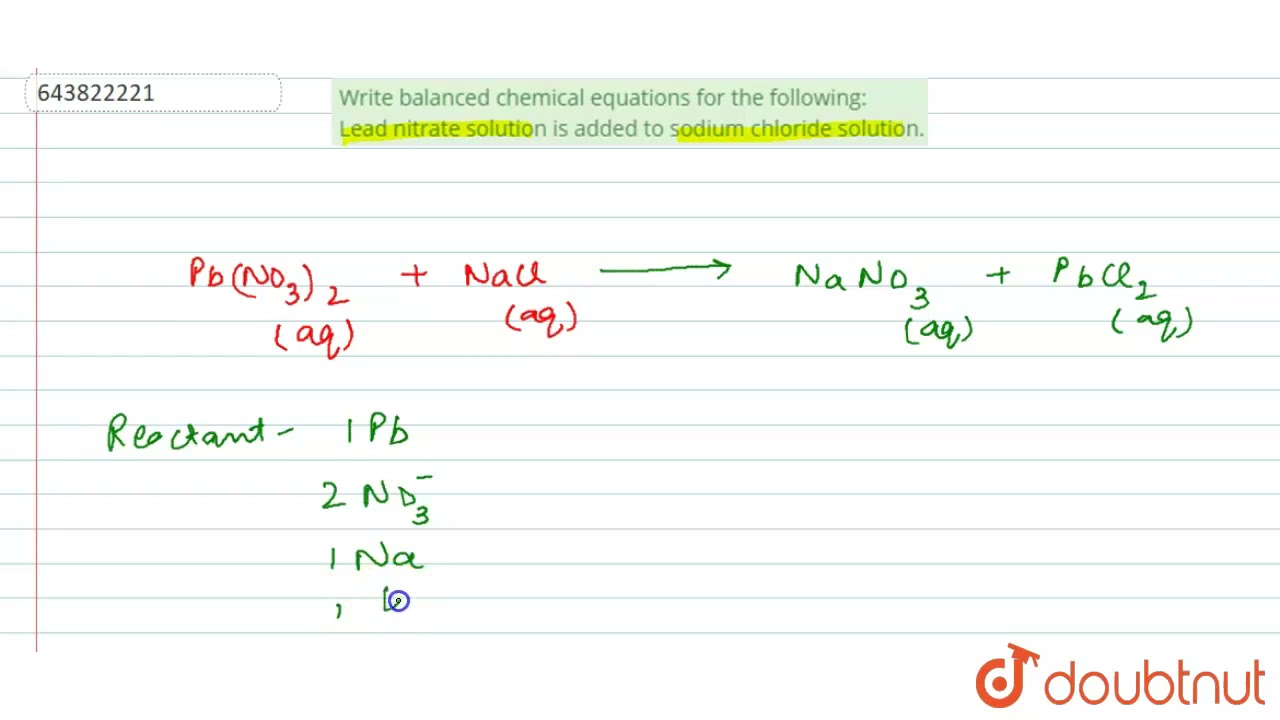 643822221
Write balanced chemical equations for the following:
Lead nitrate solution is added to sodium chloride solution.
Pb(NO3)2 + NaCl ⟶ NaNO3 + PbCl2
(aq) (aq) (aq) (aq)
Reactant - 1 Pb
2 NO3⁻
1 Na
1
doubtnut